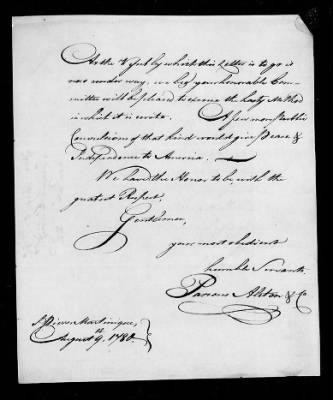 As the Vessel by which this Letter is to go is
now under way, we beg your honorable Com-
mittee will be pleased to excuse the hasty Method
in which it is wrote. A few more public
Convulsions of that kind would give Peace &
Independence to America.
We have the Honor to be, with the
greatest Respect,
Gentlemen,
your most obedient
humble Servants
Parsons Alston & Co
St Pierre Martinique,
August 9th. 1780.